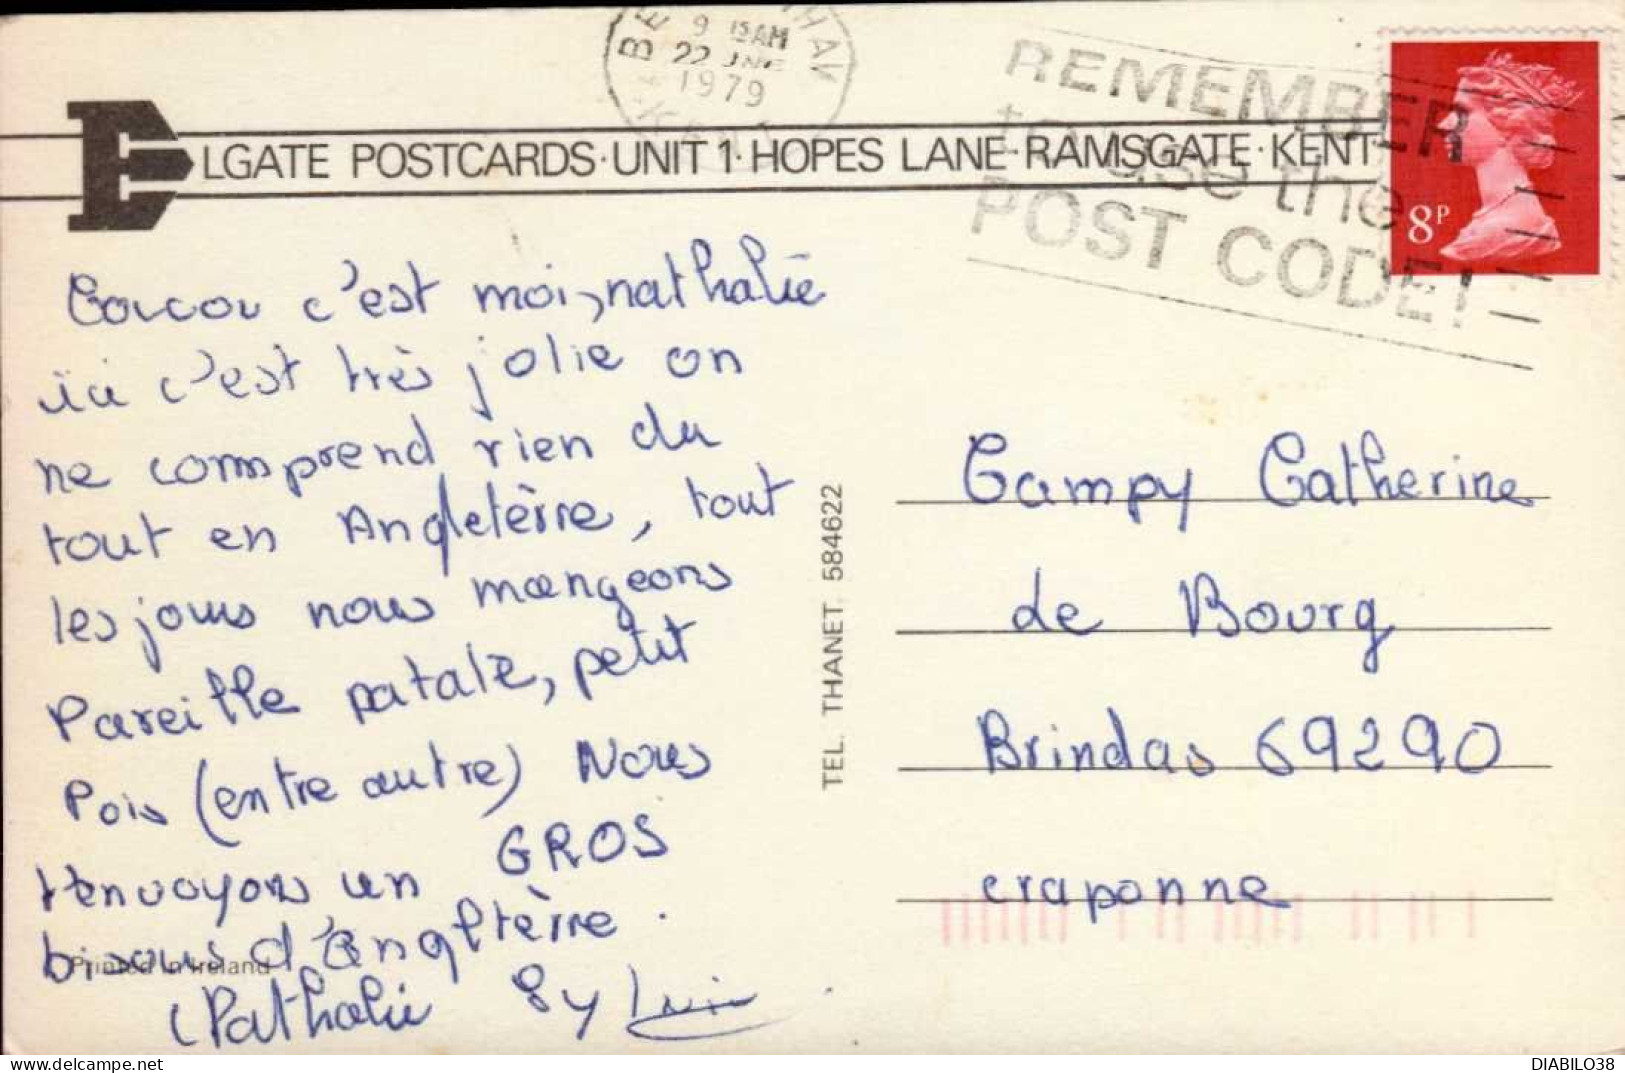 9 15AM
22 JNE
1979
KENT
REMEMBER
to use the
POST CODE!
8P
ELGATE POSTCARDS·UNIT 1·HOPES LANE·RAMSGATE·KENT
Coucou c'est moi, nathalie
ici c'est très jolie on
ne comprend rien du
tout en Angletèrre, tout
les jours nous mangeons
Pareille patate, petit
Pois (entre autre) Nous
t'envoyons un GROS
bisous d'Angltèrre.
Nathalie
Printed in Ireland
TEL. THANET. 584622
Campy Catherine
de Bourg
Brindas 69290
craponne
DIABILO38